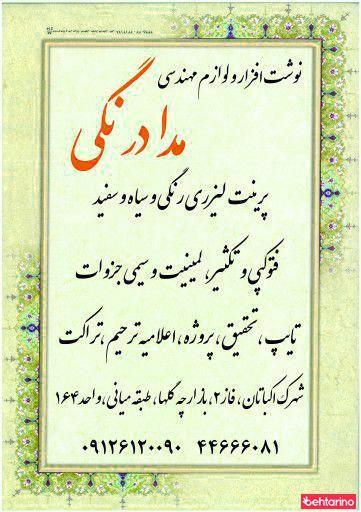 نوشت افزار و لوازم مهندسی
مداد رنگی
پرینت لیزری رنگی و سیاه و سفید
فتوکپی و تکثیر، لمینیت و سیمی جزوات
تایپ، تحقیق، پروژه، اعلامیه ترحیم، تراکت
شهرک اکباتان، فاز۲، بازارچه گلها، طبقه میانی، واحد ۱۶۴
۰۹۱۲۶۱۲۰۰۹۰ ۴۴۶۶۶۰۸۱
behtarino